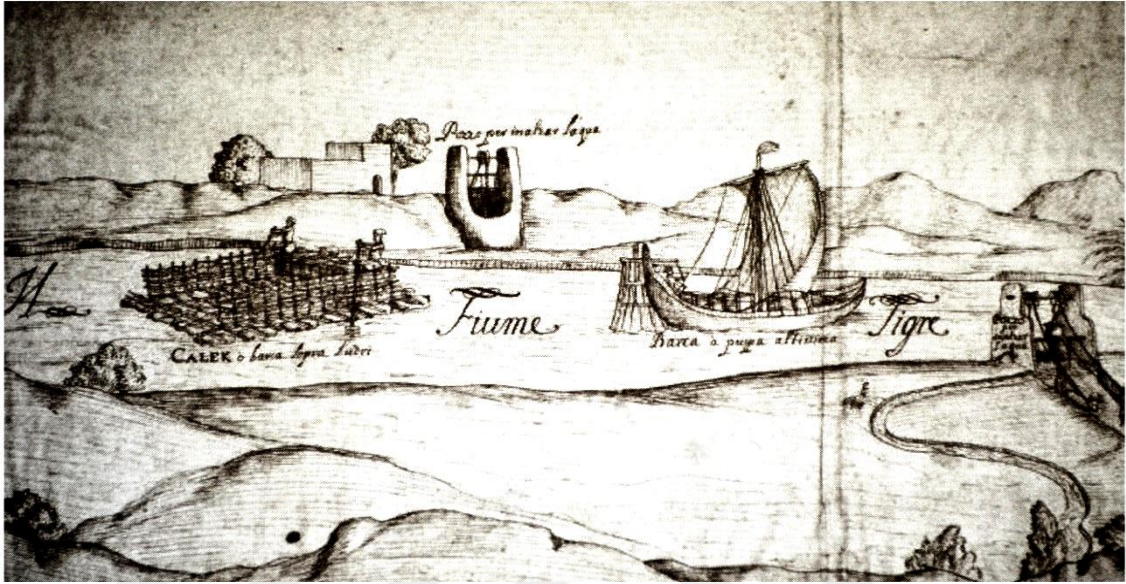 Pozzo per inalzar l'aqua
Il Fiume Tigre
CALEK o barca sopra ludri
Barca à puppa altissima